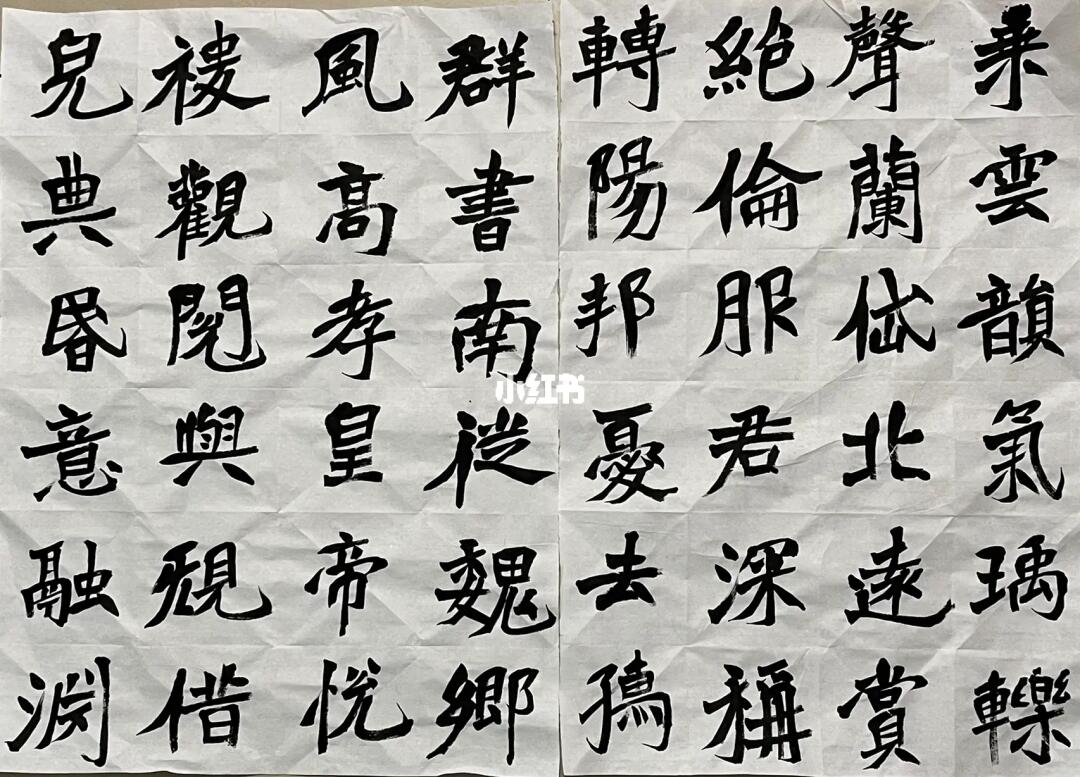 乗雲韻氣瑀轢
聲蘭岱北遠賞
絕倫服君深稱
轉陽邦憂去
群書南從魏鄉
風高孝皇帝悅
觀閱與借
皃典昏意融淵
小红书